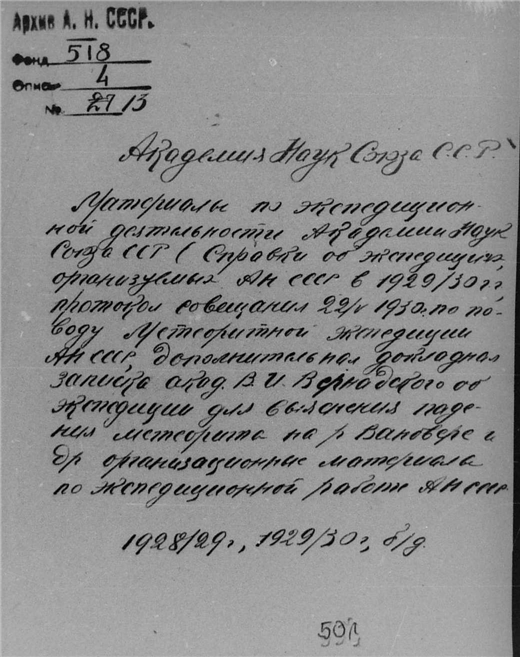 Архив А. Н. СССР.
Фонд 518
Опись 4
№ 27 13
Академия Наук Союза С.С.Р.
Материалы по экспедицион-
ной деятельности Академии Наук
Союза ССР (Справки об экспедициях,
организуемых АН СССР в 1929/30 гг,
протокол совещания 22/V 1930г. по по-
воду Метеоритной экспедиции
АН СССР, дополнительная докладная
записка акад. В. И. Вернадского об
экспедиции для выяснения паде-
ния метеорита на р Вановаре и
др организационные материалы
по экспедиционной работе АН СССР
1928/29г, 1929/30г, б/д.
50л